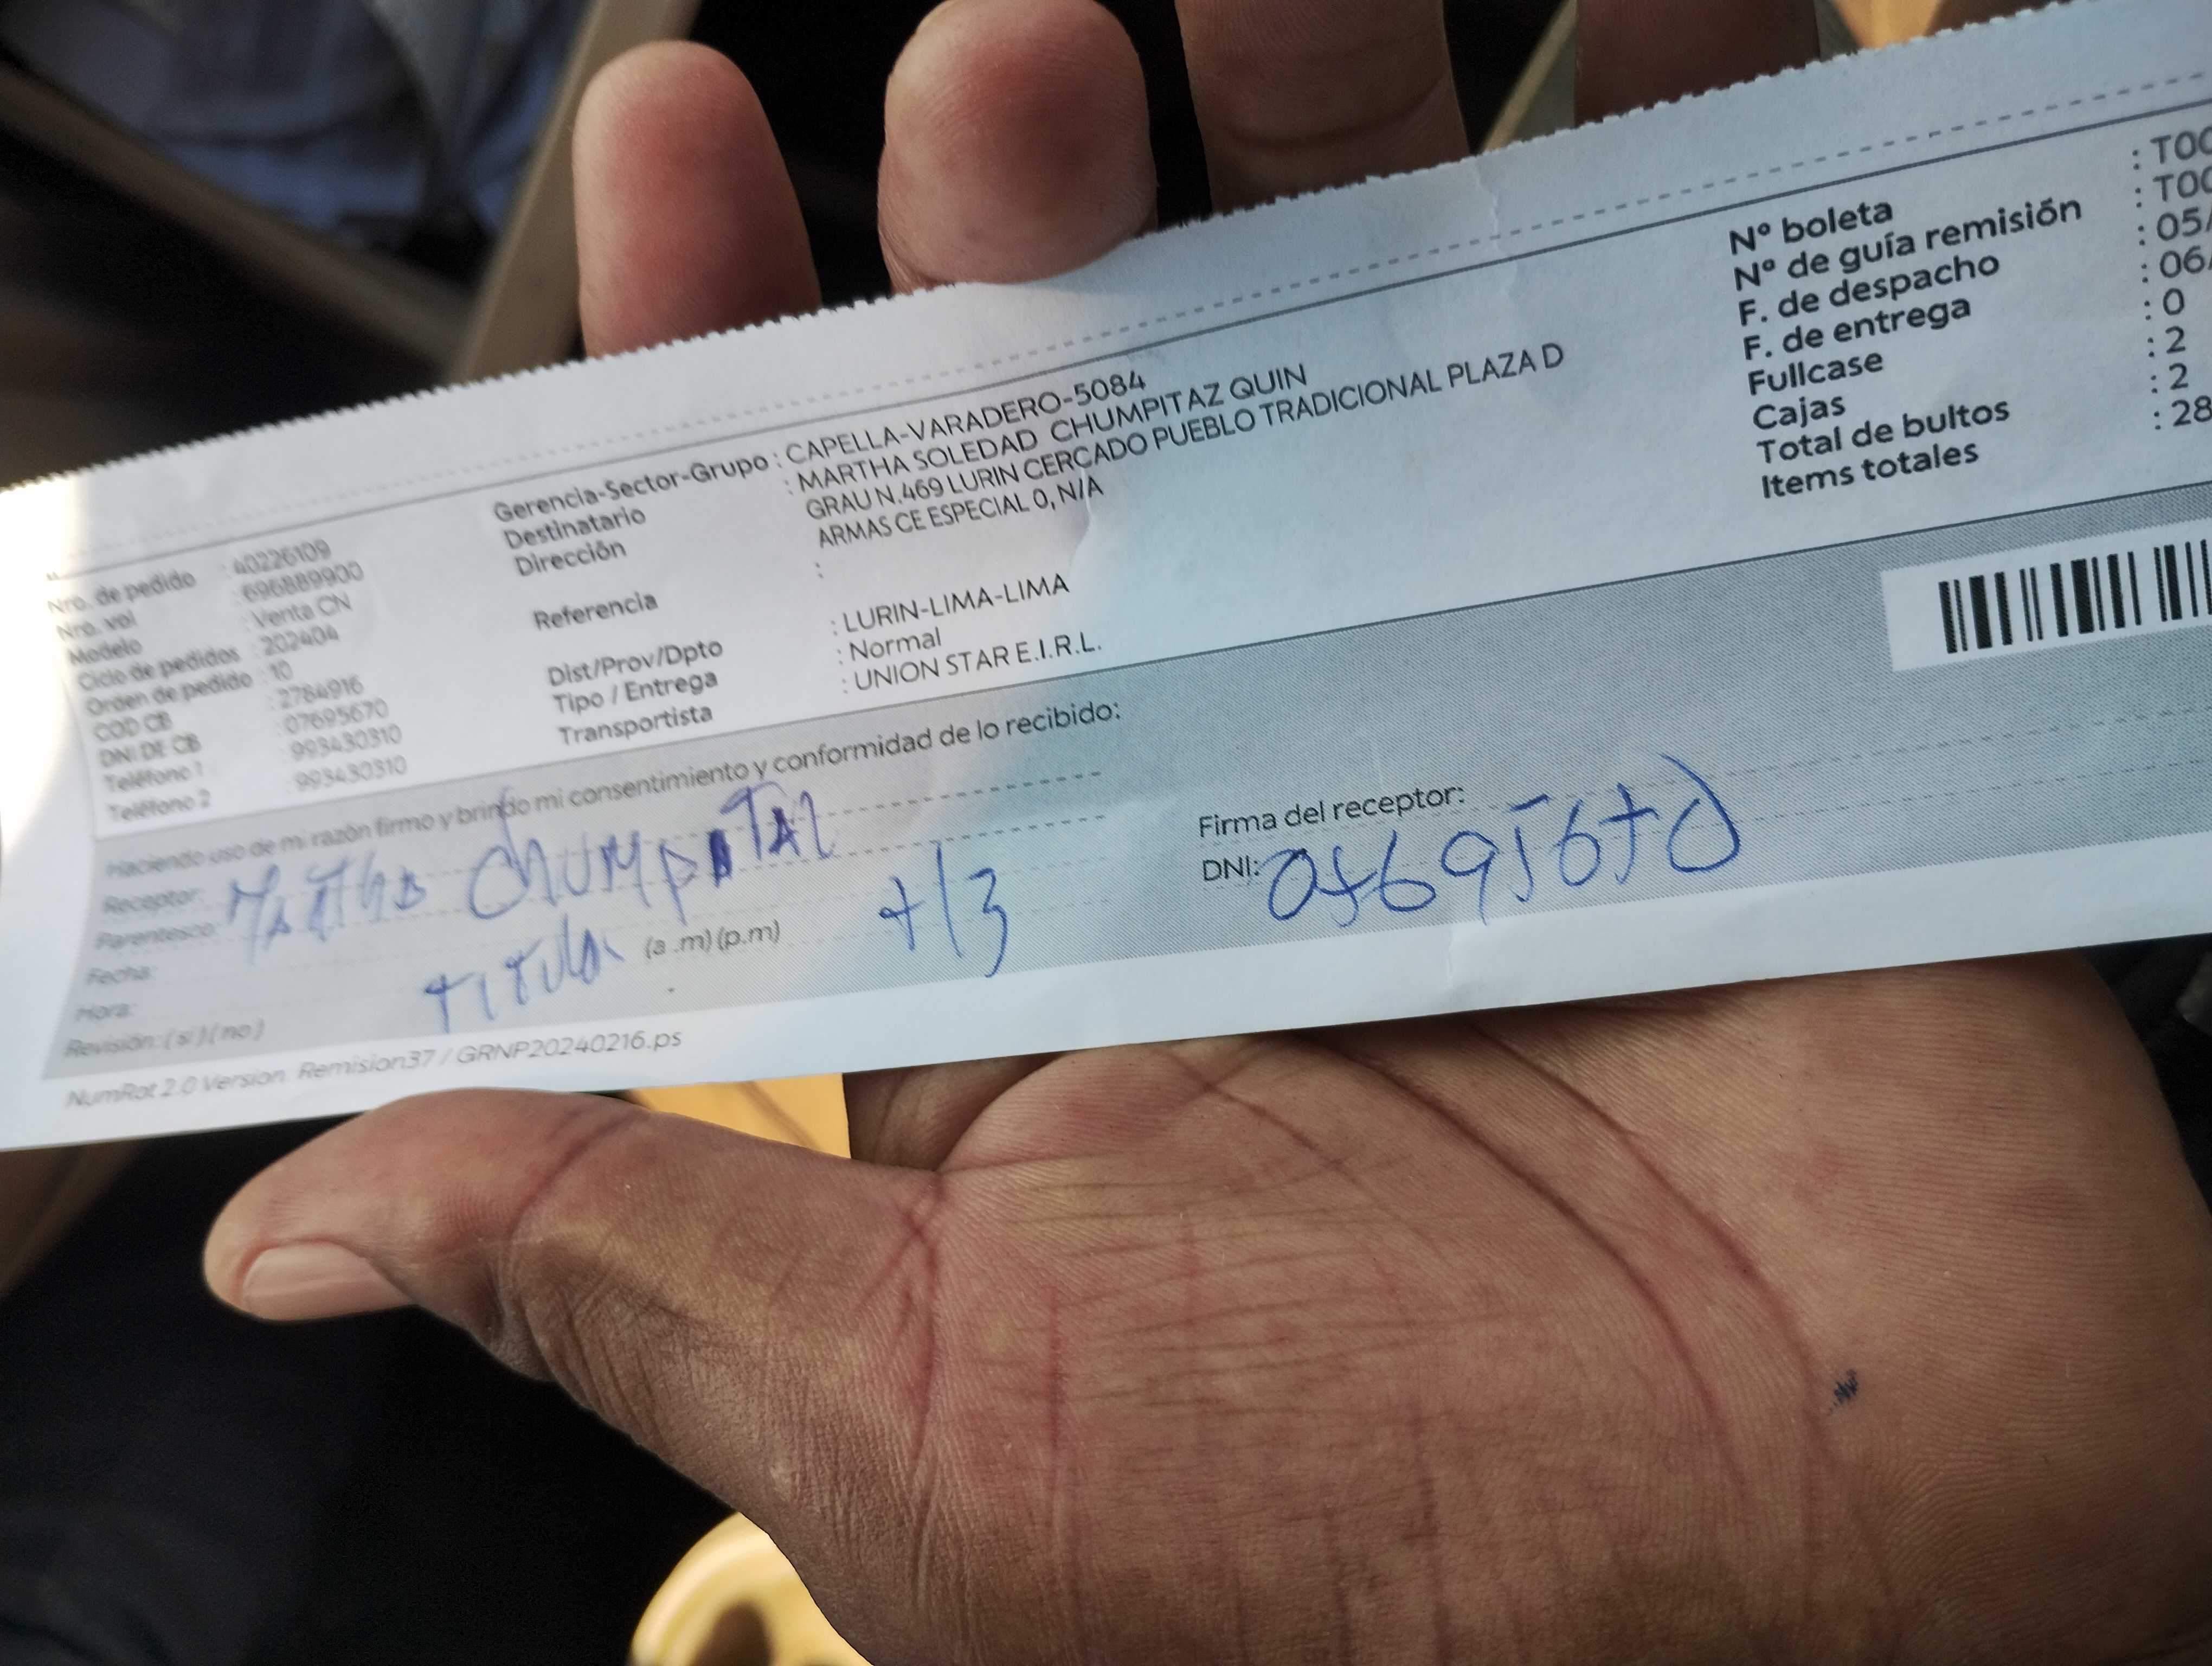 Nro. de pedido : 40226109
Nro. vol : 696889900
Modelo : Venta CN
Ciclo de pedidos : 202404
Orden de pedido : 10
COD CB : 2784916
DNI DE CB : 07695670
Teléfono 1 : 993430310
Teléfono 2 : 993430310
Gerencia-Sector-Grupo : CAPELLA-VARADERO-5084
Destinatario : MARTHA SOLEDAD CHUMPITAZ QUIN
Dirección GRAU N.469 LURIN CERCADO PUEBLO TRADICIONAL PLAZA D
ARMAS CE ESPECIAL 0, N/A
Referencia :
Dist/Prov/Dpto : LURIN-LIMA-LIMA
Tipo / Entrega : Normal
Transportista : UNION STAR E.I.R.L.
Nº boleta : T00
Nº de guía remisión : T00
F. de despacho : 05/
F. de entrega : 06/
Fullcase : 0
Cajas : 2
Total de bultos : 2
Items totales : 28
Haciendo uso de mi razón firmo y brindo mi consentimiento y conformidad de lo recibido:
Receptor: Martha CHUMPITAZ
Parentesco:
Fecha: Titular
Hora: (a .m) (p.m) +13
Revisión: ( si ) ( no )
Firma del receptor:
DNI: 07695670
NumRot 2.0 Version. Remision37 / GRNP20240216.ps